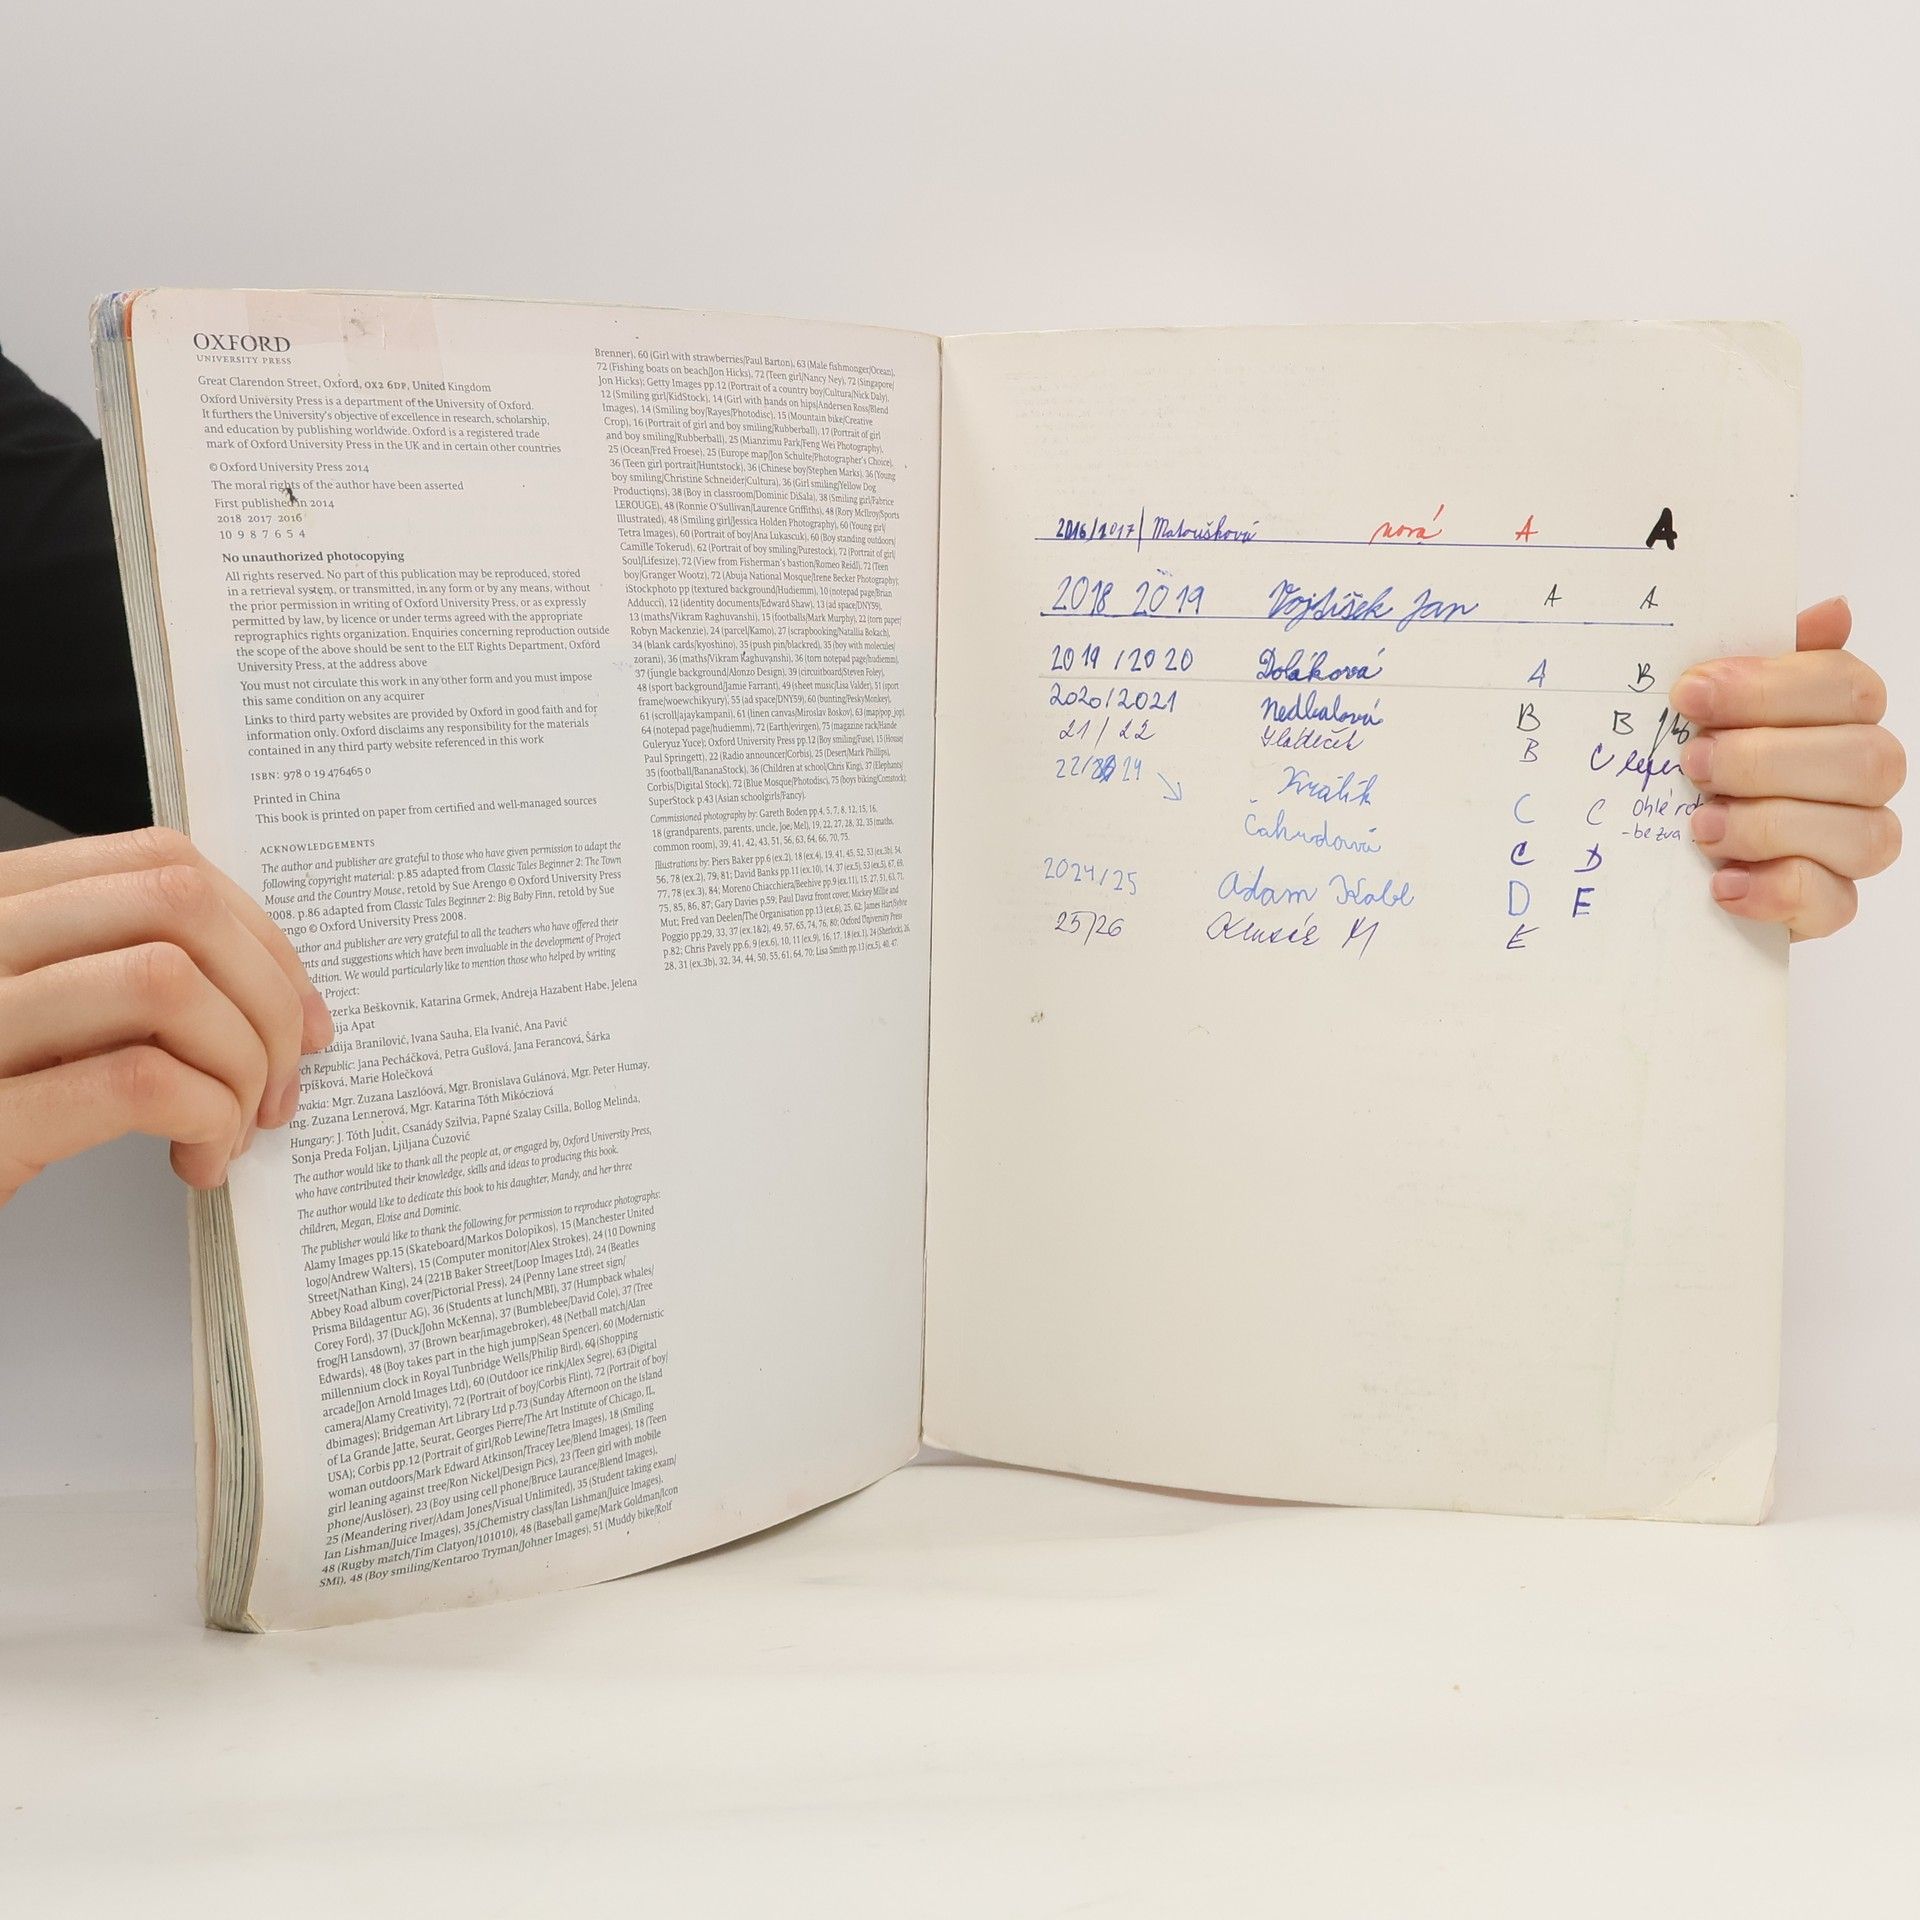 OXFORD
UNIVERSITY PRESS
Great Clarendon Street, Oxford, OX2 6DP, United Kingdom
Oxford University Press is a department of the University of Oxford.
It furthers the University's objective of excellence in research, scholarship,
and education by publishing worldwide. Oxford is a registered trade
mark of Oxford University Press in the UK and in certain other countries
© Oxford University Press 2014
The moral rights of the author have been asserted
First published in 2014
2018 2017 2016
10 9 8 7 6 5 4
No unauthorized photocopying
All rights reserved. No part of this publication may be reproduced, stored
in a retrieval system, or transmitted, in any form or by any means, without
the prior permission in writing of Oxford University Press, or as expressly
permitted by law, by licence or under terms agreed with the appropriate
reprographics rights organization. Enquiries concerning reproduction outside
the scope of the above should be sent to the ELT Rights Department, Oxford
University Press, at the address above
You must not circulate this work in any other form and you must impose
this same condition on any acquirer
Links to third party websites are provided by Oxford in good faith and for
information only. Oxford disclaims any responsibility for the materials
contained in any third party website referenced in this work
ISBN: 978 0 19 476465 0
Printed in China
This book is printed on paper from certified and well-managed sources
ACKNOWLEDGEMENTS
The author and publisher are grateful to those who have given permission to adapt the
following copyright material: p.85 adapted from Classic Tales Beginner 2: The Town
Mouse and the Country Mouse, retold by Sue Arengo © Oxford University Press
2008. p.86 adapted from Classic Tales Beginner 2: Big Baby Finn, retold by Sue
engo © Oxford University Press 2008.
uthor and publisher are very grateful to all the teachers who have offered their
nts and suggestions which have been invaluable in the development of Project
edition. We would particularly like to mention those who helped by writing
Project:
ezerka Beškovnik, Katarina Grmek, Andreja Hazabent Habe, Jelena
ija Apat
Lidija Branilović, Ivana Sauha, Ela Ivanić, Ana Pavić
ch Republic: Jana Pecháčková, Petra Gušlová, Jana Ferancová, Šárka
rpíšková, Marie Holečková
ovakia: Mgr. Zuzana Laszlóová, Mgr. Bronislava Gulánová, Mgr. Peter Humay,
Ing. Zuzana Lennerová, Mgr. Katarina Tóth Mikócziová
Hungary: J. Tóth Judit, Csanády Szilvia, Papné Szalay Csilla, Bollog Melinda,
Sonja Preda Foljan, Ljiljana Ćuzović
The author would like to thank all the people at, or engaged by, Oxford University Press,
who have contributed their knowledge, skills and ideas to producing this book.
The author would like to dedicate this book to his daughter, Mandy, and her three
children, Megan, Eloise and Dominic.
The publisher would like to thank the following for permission to reproduce photographs:
Alamy Images pp.15 (Skateboard/Markos Dolopikos), 15 (Manchester United
logo/Andrew Walters), 15 (Computer monitor/Alex Strokes), 24 (10 Downing
Street/Nathan King), 24 (221B Baker Street/Loop Images Ltd), 24 (Beatles
Abbey Road album cover/Pictorial Press), 24 (Penny Lane street sign/
Prisma Bildagentur AG), 36 (Students at lunch/MBI), 37 (Humpback whales/
Corey Ford), 37 (Duck/John McKenna), 37 (Bumblebee/David Cole), 37 (Tree
frog/H Lansdown), 37 (Brown bear/imagebroker), 48 (Netball match/Alan
Edwards), 48 (Boy takes part in the high jump/Sean Spencer), 60 (Modernistic
millennium clock in Royal Tunbridge Wells/Philip Bird), 60 (Shopping
arcade/Jon Arnold Images Ltd), 60 (Outdoor ice rink/Alex Segre), 63 (Digital
camera/Alamy Creativity), 72 (Portrait of boy/Corbis Flint), 72 (Portrait of boy/
dbimages); Bridgeman Art Library Ltd p.73 (Sunday Afternoon on the Island
of La Grande Jatte, Seurat, Georges Pierre/The Art Institute of Chicago, IL,
USA); Corbis pp.12 (Portrait of girl/Rob Lewine/Tetra Images), 18 (Smiling
woman outdoors/Mark Edward Atkinson/Tracey Lee/Blend Images), 18 (Teen
girl leaning against tree/Ron Nickel/Design Pics), 23 (Teen girl with mobile
phone/Auslöser), 23 (Boy using cell phone/Bruce Laurance/Blend Images),
25 (Meandering river/Adam Jones/Visual Unlimited), 35 (Student taking exam/
Ian Lishman/Juice Images), 35 (Chemistry class/Ian Lishman/Juice Images),
48 (Rugby match/Tim Clatyon/101010), 48 (Baseball game/Mark Goldman/Icon
SMI), 48 (Boy smiling/Kentaroo Tryman/Johner Images), 51 (Muddy bike/Rolf
Brenner), 60 (Girl with strawberries/Paul Barton), 63 (Male fishmonger/Ocean),
72 (Fishing boats on beach/Jon Hicks), 72 (Teen girl/Nancy Ney), 72 (Singapore/
Jon Hicks); Getty Images pp.12 (Portrait of a country boy/Cultura/Nick Daly),
12 (Smiling girl/KidStock), 14 (Girl with hands on hips/Andersen Ross/Blend
Images), 14 (Smiling boy/Rayes/Photodisc), 15 (Mountain bike/Creative
Crop), 16 (Portrait of girl and boy smiling/Rubberball), 17 (Portrait of girl
and boy smiling/Rubberball), 25 (Mianzimu Park/Feng Wei Photography),
25 (Ocean/Fred Froese), 25 (Europe map/Jon Schulte/Photographer's Choice),
36 (Teen girl portrait/Huntstock), 36 (Chinese boy/Stephen Marks), 36 (Young
boy smiling/Christine Schneider/Cultura), 36 (Girl smiling/Yellow Dog
Productions), 38 (Boy in classroom/Dominic DiSala), 38 (Smiling girl/Fabrice
LEROUGE), 48 (Ronnie O'Sullivan/Laurence Griffiths), 48 (Rory McIlroy/Sports
Illustrated), 48 (Smiling girl/Jessica Holden Photography), 60 (Young girl/
Tetra Images), 60 (Portrait of boy/Ana Lukascuk), 60 (Boy standing outdoors/
Camille Tokerud), 62 (Portrait of boy smiling/Purestock), 72 (Portrait of girl/
Soul/Lifesize), 72 (View from Fisherman's bastion/Romeo Reidl), 72 (Teen
boy/Granger Wootz), 72 (Abuja National Mosque/Irene Becker Photography);
iStockphoto pp (textured background/Hudiemm), 10 (notepad page/Brian
Adducci), 12 (identity documents/Edward Shaw), 13 (ad space/DNY59),
13 (maths/Vikram Raghuvanshi), 15 (footballs/Mark Murphy), 22 (torn paper/
Robyn Mackenzie), 24 (parcel/Kamo), 27 (scrapbooking/Natallia Bokach),
34 (blank cards/kyoshino), 35 (push pin/blackred), 35 (boy with molecules/
zorani), 36 (maths/Vikram Raghuvanshi), 36 (torn notepad page/hudiemm),
37 (jungle background/Alonzo Design), 39 (circuitboard/Steven Foley),
48 (sport background/Jamie Farrant), 49 (sheet music/Lisa Valder), 51 (sport
frame/woewchikyury), 55 (ad space/DNY59), 60 (bunting/PeskyMonkey),
61 (scroll/ajaykampani), 61 (linen canvas/Miroslav Boskov), 63 (map/pop_jop),
64 (notepad page/hudiemm), 72 (Earth/evirgen), 75 (magazine rack/Hande
Guleryuz Yuce); Oxford University Press pp.12 (Boy smiling/Fuse), 15 (House/
Paul Springett), 22 (Radio announcer/Corbis), 25 (Desert/Mark Phillips),
35 (football/BananaStock), 36 (Children at school/Chris King), 37 (Elephants/
Corbis/Digital Stock), 72 (Blue Mosque/Photodisc), 75 (boys biking/Comstock);
SuperStock p.43 (Asian schoolgirls/Fancy).
Commissioned photography by: Gareth Boden pp.4, 5, 7, 8, 12, 15, 16,
18 (grandparents, parents, uncle, Joe, Mel), 19, 22, 27, 28, 32, 35 (maths,
common room), 39, 41, 42, 43, 51, 56, 63, 64, 66, 70, 75.
Illustrations by: Piers Baker pp.6 (ex.2), 18 (ex.4), 19, 41, 45, 52, 53 (ex.3b), 54,
56, 78 (ex.2), 79, 81; David Banks pp.11 (ex.10), 14, 37 (ex.5), 53 (ex.6), 67, 69,
77, 78 (ex.3), 84; Moreno Chiacchiera/Beehive pp.9 (ex.11), 15, 27, 51, 63, 71,
75, 85, 86, 87; Gary Davies p.59; Paul Daviz front cover, Mickey Millie and
Mut; Fred van Deelen/The Organisation pp.13 (ex.6), 25, 62; James Hart/Sylvie
Poggio pp.29, 33, 37 (ex.1&2), 49, 57, 65, 74, 76, 80; Oxford University Press
p.82; Chris Pavely pp.6, 9 (ex.6), 10, 11 (ex.9), 16, 17, 18 (ex.1), 24 (Sherlock), 26,
28, 31 (ex.3b), 32, 34, 44, 50, 55, 61, 64, 70; Lisa Smith pp.13 (ex.5), 40, 47.
2016/2017 Matoušková nová A A
2018 2019 Vojtíšek Jan A A
2019/2020 Doláková A B
2020/2021 Nedbalová B B
21/22 B C
22/ 24 Králík C C
Čahudová C D
2024/25 Adam Kabl D E
25/26 M E